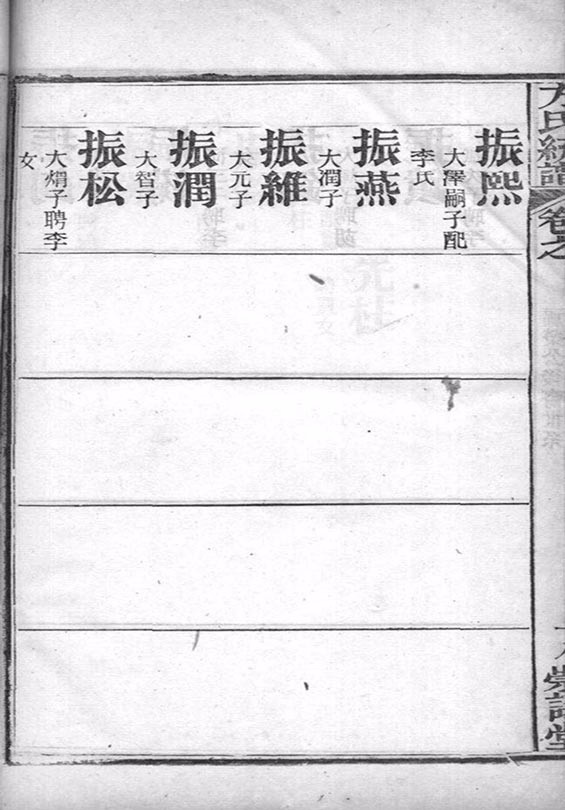 方氏統譜
卷之
崇語堂
振熙
大澤嗣子配
李氏
振燕
大潤子
振維
大元子
振潤
大智子
振松
大焆子聘李
女